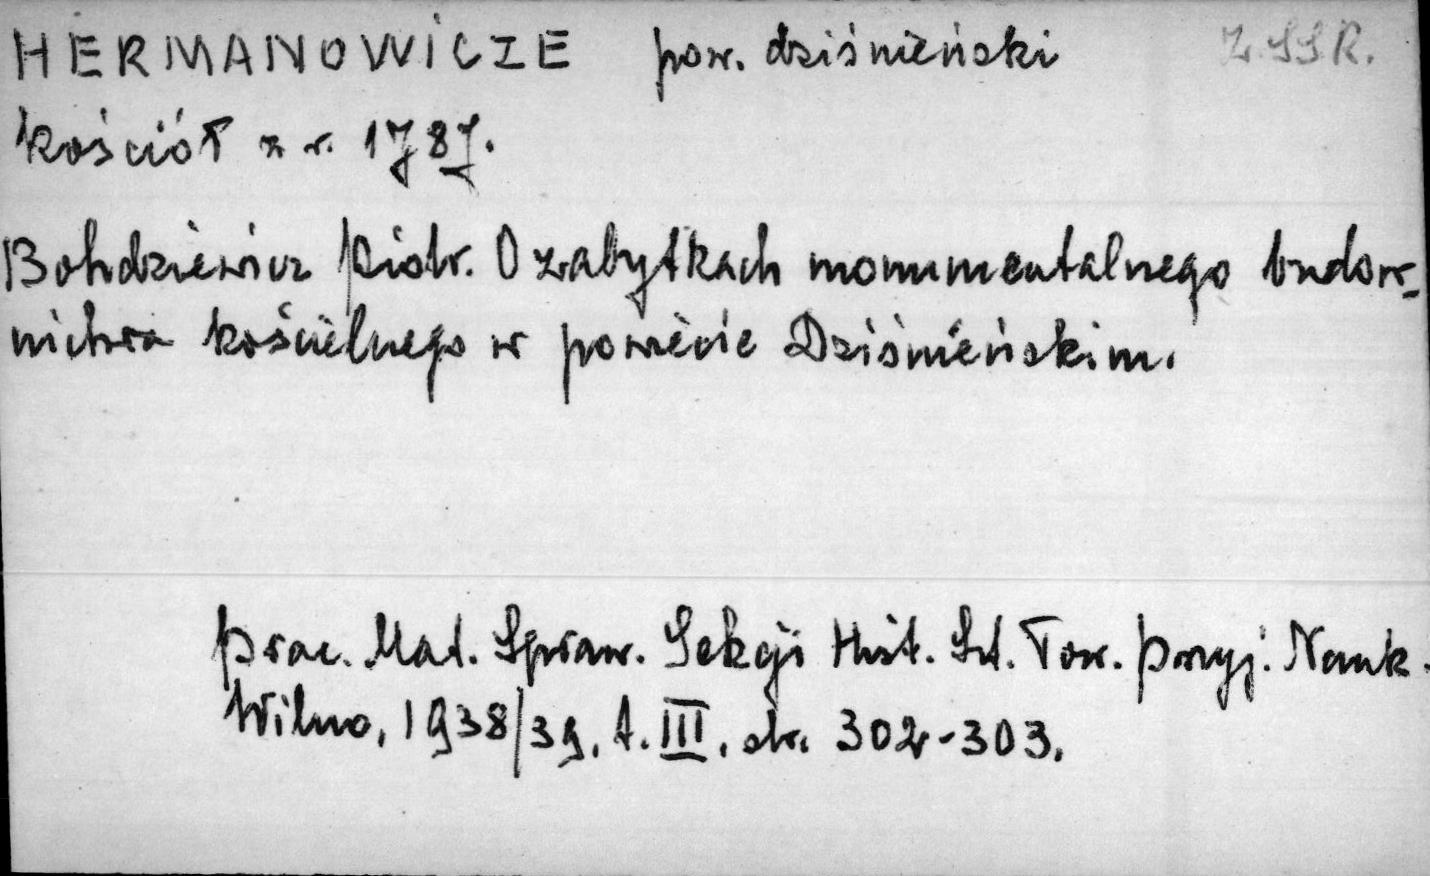 HERMANOWICZE pow. dziśnieński Z.SSR.
Kościół z r. 1787.
Bohdziewicz Piotr. O zabytkach monumentalnego budow-
nictwa kościelnego w powiecie Dziśnieńskim.
Prac. Mat. Spraw. Sekcji Hist. Szt. Tow. Przyj. Nauk.
Wilno, 1938/39, t. III, str. 302-303.